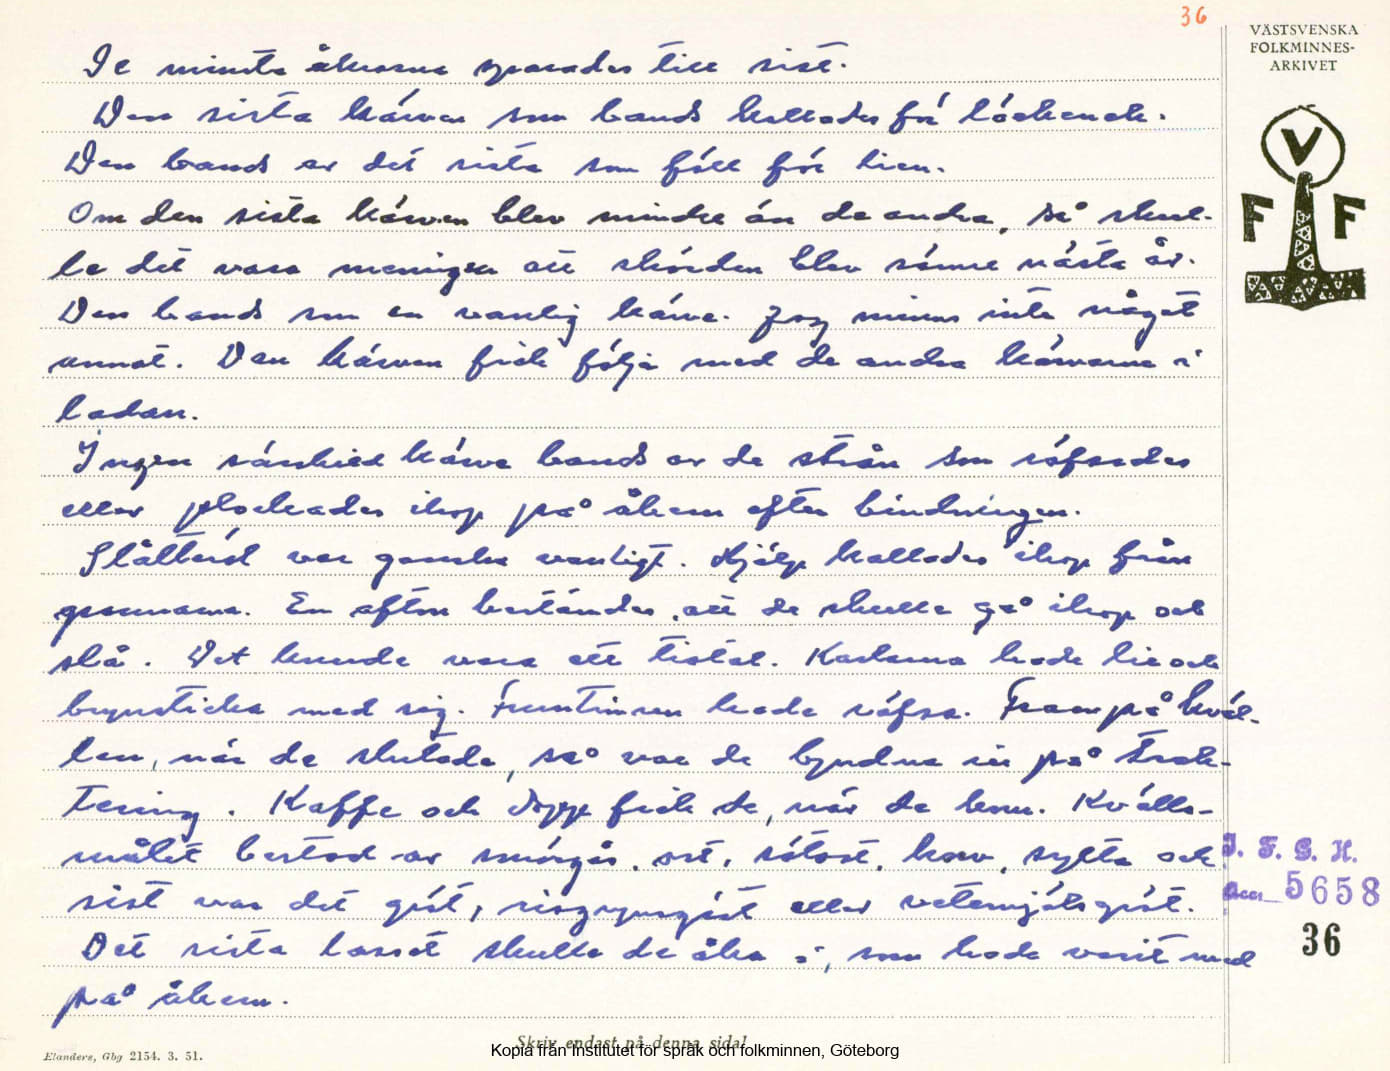 36
VÄSTSVENSKA
FOLKMINNES-
ARKIVET
V
F F
De minsta åkrarna sparades till sist.
Den sista kärven som bands kallades för löckenek.
Den bands av det sista som föll för lien.
Om den sista kärven blev mindre än de andra, så skul-
le det vara meningen att skörden blev sämre nästa år.
Den bands som en vanlig kärve. Jag minns inte något
annat. Den kärven fick följa med de andra kärvarna i
ladan.
Ingen särskild kärve bands av de strån som räfsades
eller plockades ihop på åkern efter bindningen.
Slåtteröl var ganska vanligt. Hjälp kallades ihop från
grannarna. En afton bestämdes, att de skulle gå ihop och
slå. Det kunde vara ett tiotal. Karlarna hade lie och
brynsticka med sig. Fruntimren hade räfsa. Fram på kväl-
len, när de slutade, så var de bjudna in på trak-
tering. Kaffe och dopp fick de, när de kom. Kvälls-
målet bestod av smörgås, ost, sötost, korv, sylta och
sist var det gröt, risgrynsgröt eller vetemjölsgröt.
Det sista lasset skulle de åka i, som hade varit med
på åkern.
I. F. G. H.
Acc. 5658
36
Skriv endast på denna sida!
Elanders, Gbg 2154. 3. 51.
Kopia från Institutet för språk och folkminnen, Göteborg